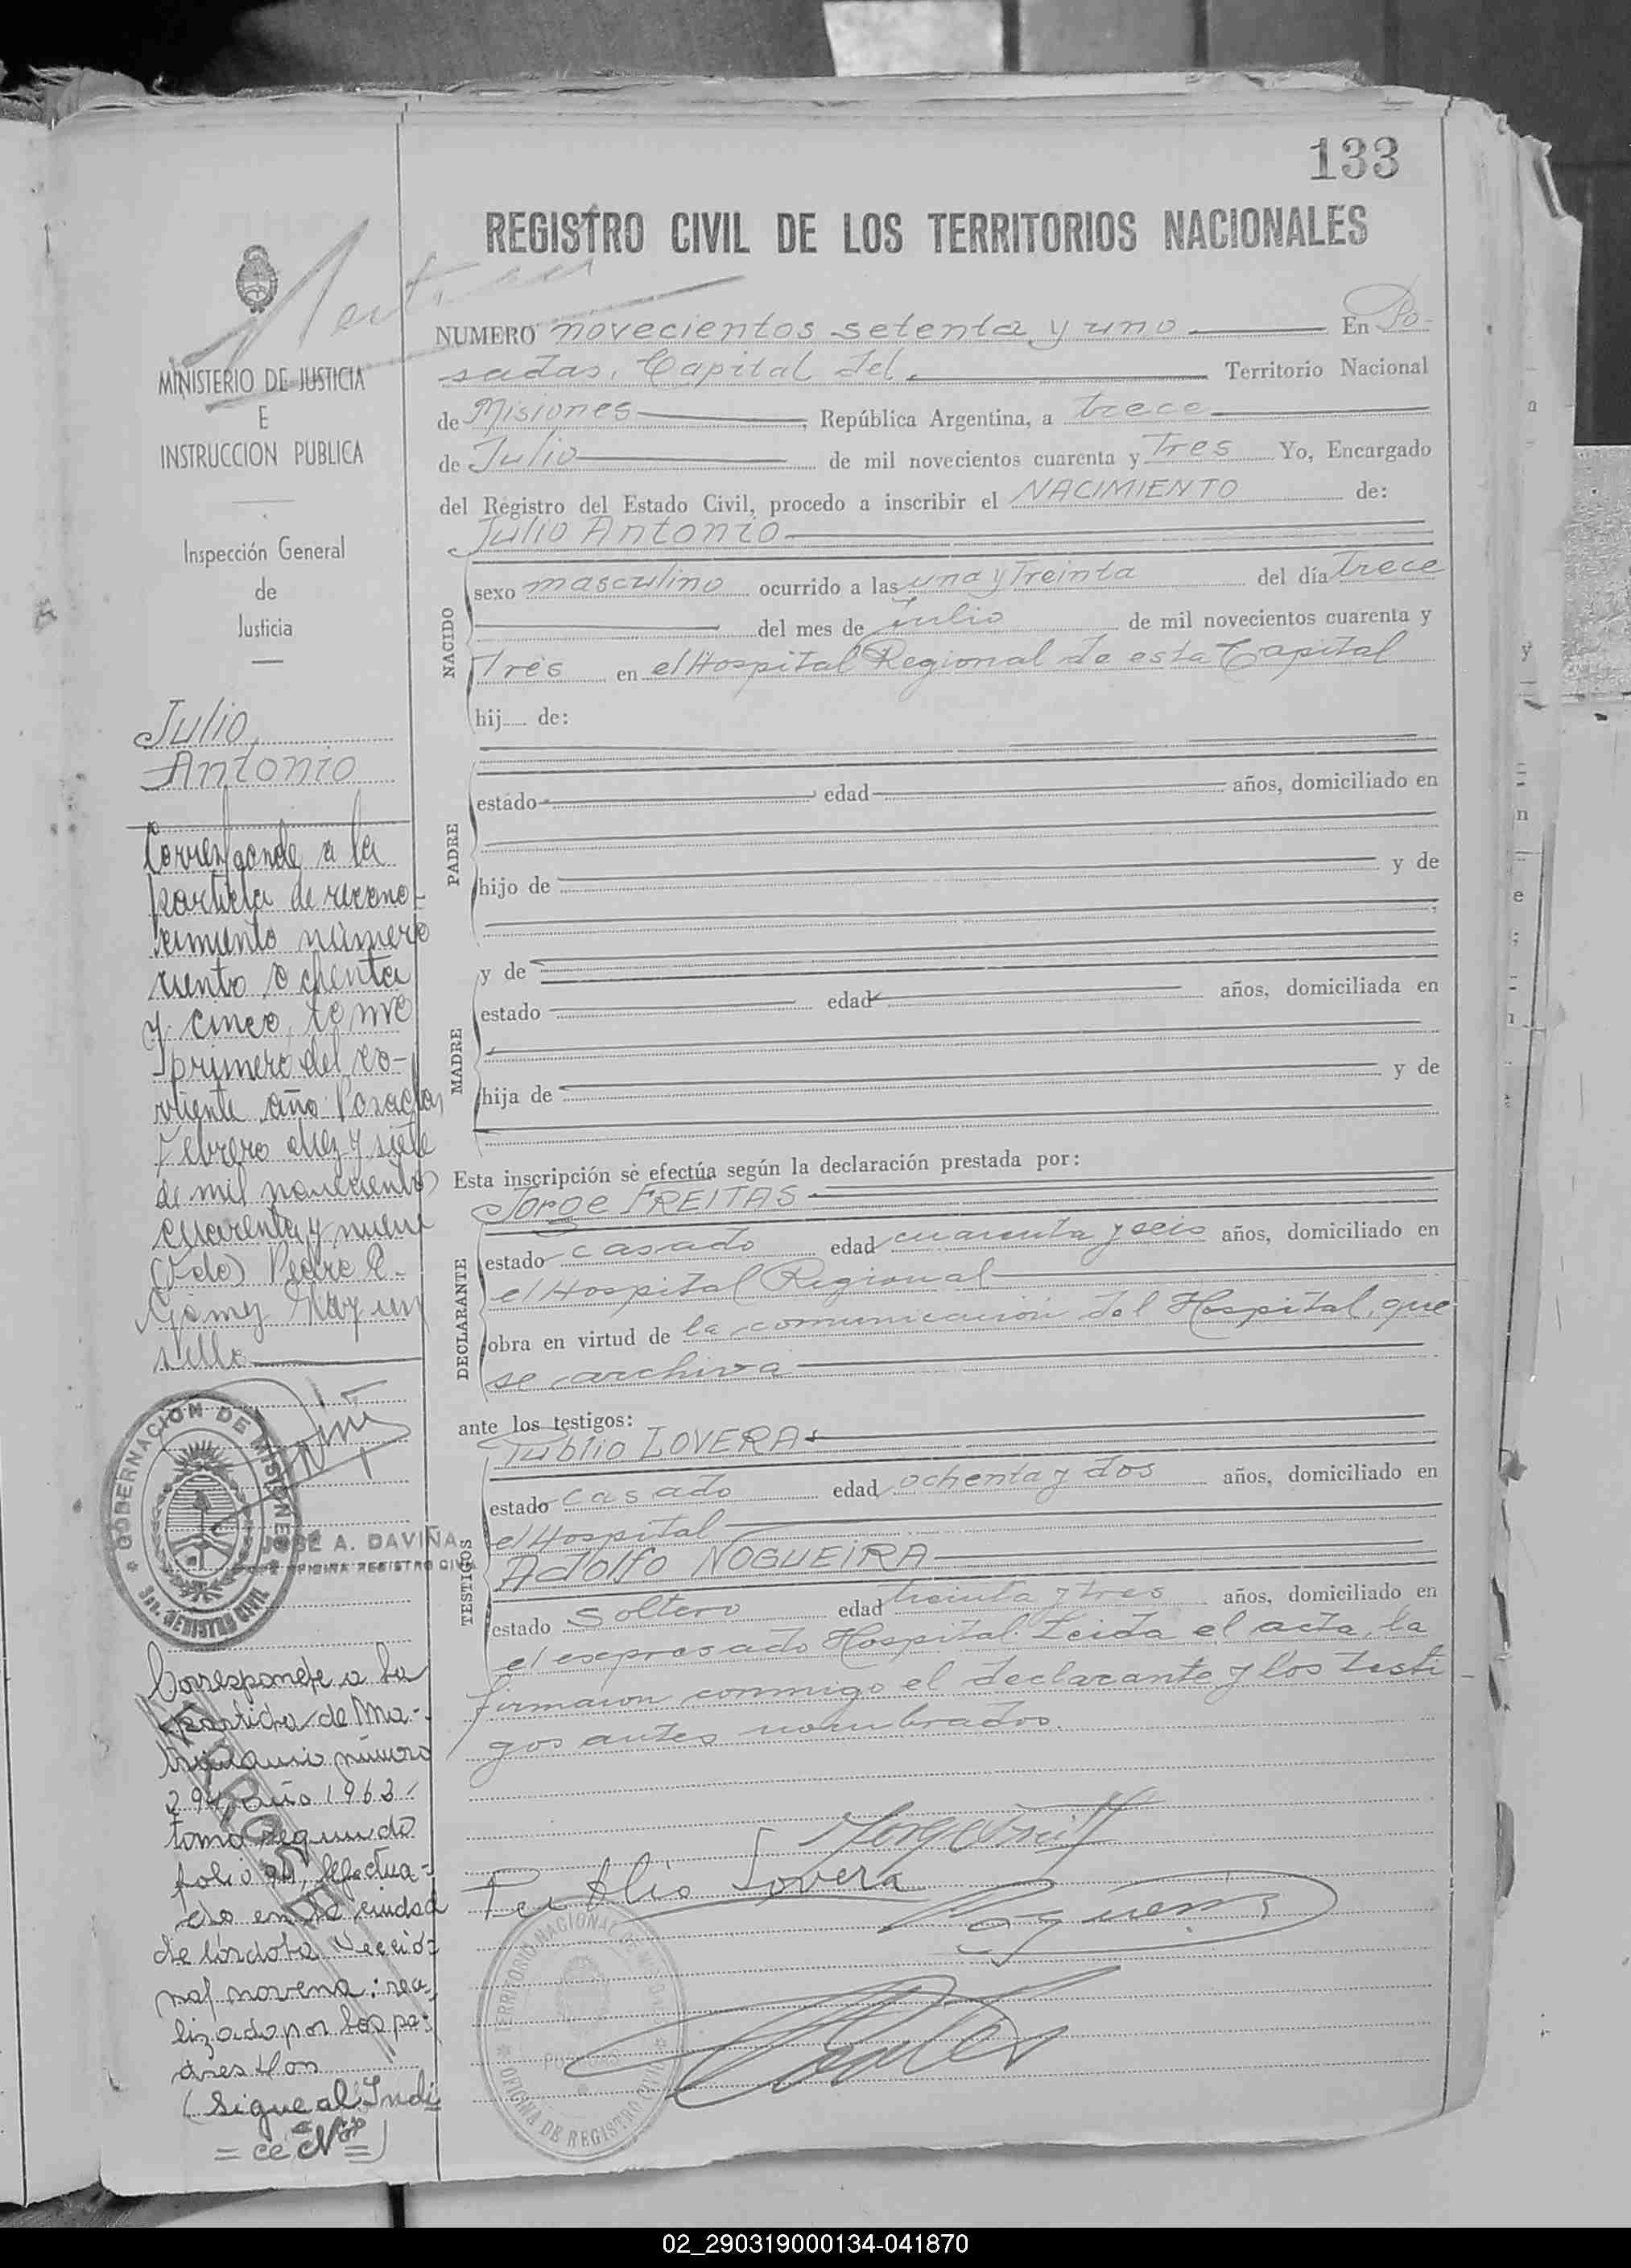 133
REGISTRO CIVIL DE LOS TERRITORIOS NACIONALES
MINISTERIO DE JUSTICIA
E
INSTRUCCION PUBLICA
Inspección General
de
Justicia
Julio
Antonio
Corresponde a la
partida de recono-
cimiento número
ciento ochenta
y cinco, tomo
primero del co-
rriente año. Posadas
Febrero diez y siete
de mil novecientos
cuarenta y nueve
(Fdo) Pedro C.
Gómez Hay un
sello
GOBERNACION DE MISIONES
Sec. REGISTRO CIVIL
JOSE A. DAVIÑA
JEFE OFICINA REGISTRO CIVIL
Corresponde a la
partida de Ma-
trimonio número
294, año 1963
tomo segundo
folio 94, efectua-
do en la ciudad
de Córdoba Seccio-
nal novena: rea-
lizado por los pa-
dres
(Sigue al Indi
= ce Nº =)
NUMERO novecientos setenta y uno En Po-
sadas, Capital del Territorio Nacional
de Misiones, República Argentina, a trece
de Julio de mil novecientos cuarenta y Tres Yo, Encargado
del Registro del Estado Civil, procedo a inscribir el NACIMIENTO de:
Julio Antonio
NACIDO
sexo masculino ocurrido a las una y Treinta del día Trece
del mes de Julio de mil novecientos cuarenta y
Tres en el Hospital Regional de esta Capital
hij de:
PADRE
estado edad años, domiciliado en
hijo de y de
y de
MADRE
estado edad años, domiciliada en
hija de y de
Esta inscripción se efectúa según la declaración prestada por:
Jorge FREITAS
DECLARANTE
estado casado edad cuarenta y seis años, domiciliado en
el Hospital Regional
obra en virtud de la comunicación del Hospital, que
se archiva
ante los testigos:
Tublio LOVERA
TESTIGOS
estado casado edad ochenta y dos años, domiciliado en
el Hospital
Adolfo NOGUEIRA
estado Soltero edad treinta y tres años, domiciliado en
el expresado Hospital. Leida el acta, la
firmaron conmigo el declarante y los testi-
gos antes nombrados.
Lovera
TERRITORIO NACIONAL DE MISIONES
POSADAS
OFICINA DE REGISTRO CIVIL
02_290319000134-041870